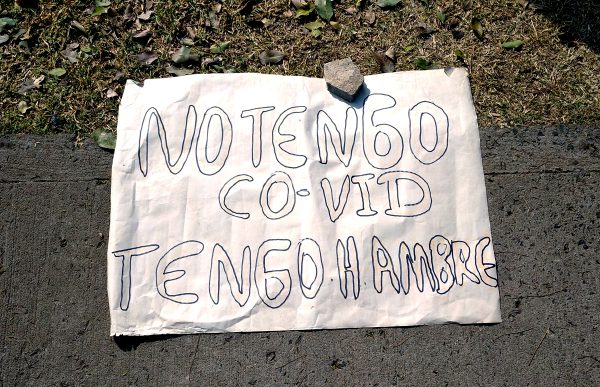 NO TENGO
CO-VID
TENGO.H.AMBRE